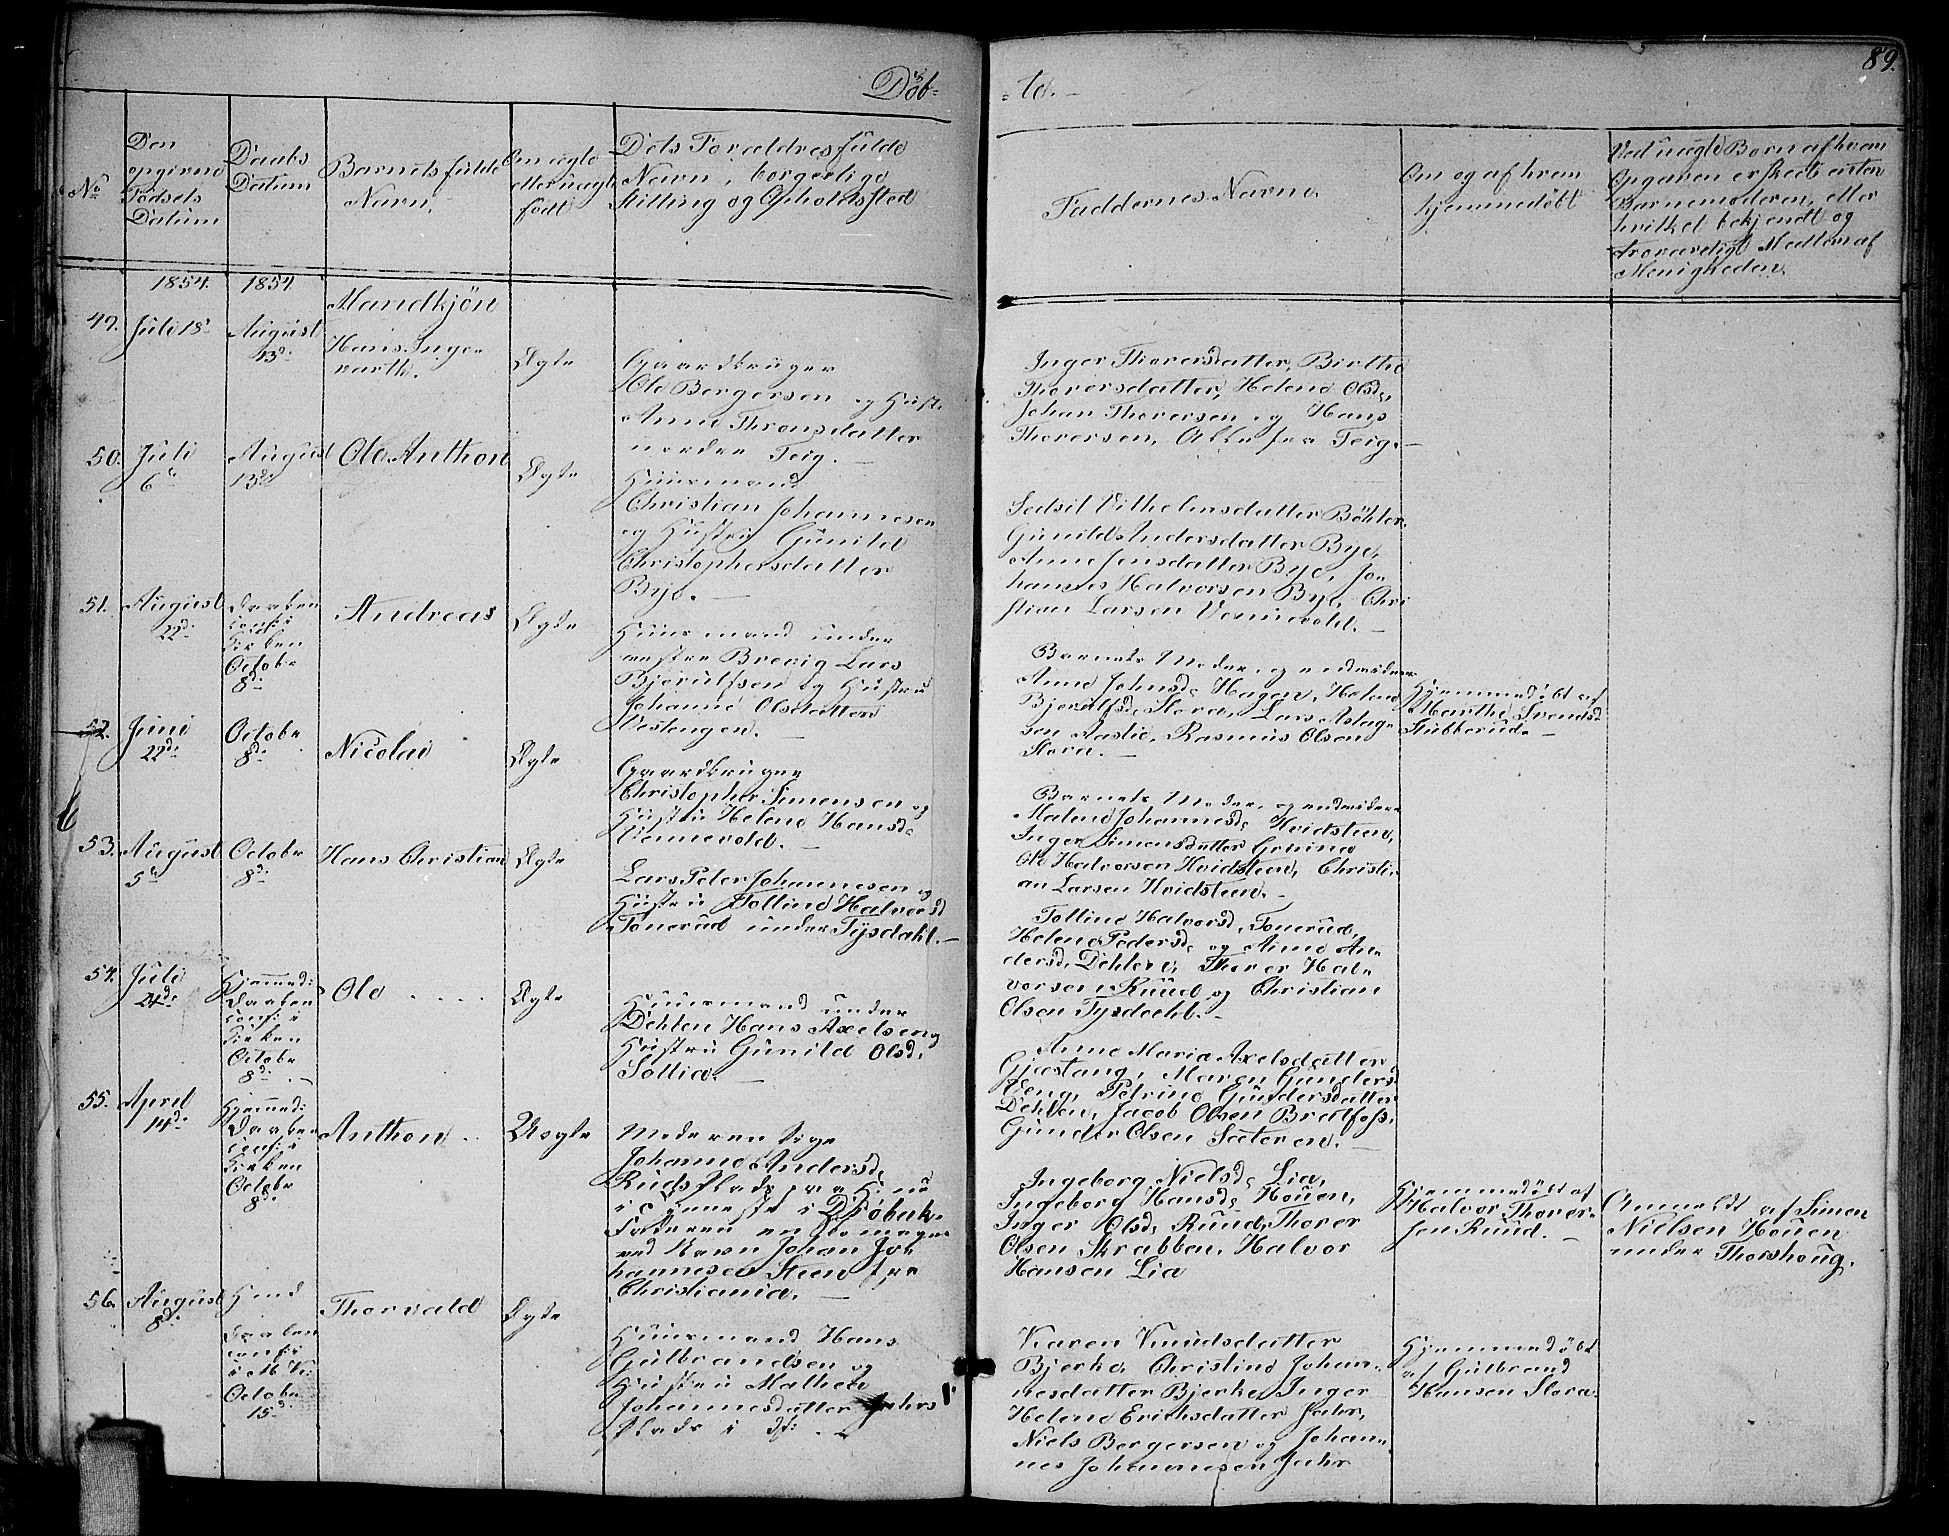 Døb=
=te.
89.
No
Den
opgivne
Födsels
Datum
Daabs
Datum
Barnets fulde
Navn.
Om ægte
eller uægte
født
Dets Forældres fulde
Navn, borgerlige
Stilling og Opholdssted
Faddernes Navne
Om og af hvem
hjemmedöbt
Ved uægte Börn af hvem
Opgaven er skedt enten
Barnemoderen, eller
hvilket bekjendt og
troværdigt Medlem af
Menigheden.
1854.
1854.
Mandkjön
49.
Juli 18
August
13de
Hans Inge-
varth.
Ægte
Gaardbruger
Ole Bergersen og Hust.
Anne Thronsdatter
nordre Teig.
Inger Thorersdatter, Birthe
Thorersdatter, Helene Olsd.,
Johan Thorersen og Hans
Thorersen, Alle fra Teig.
50.
Juli
6te
August
13de
Ole Anthon
Ægte
Huusmand
Christian Johannesen
og Hustru Gunild
Christophersdatter
Bye.
Sidsil Vilhelmsdatter Böhler,
Gunild Andersdatter Bye,
Anne Jensdatter Bye, Jo-
hannes Halvorsen Bye, Chri
stian Larsen Vennevold.
51.
August
22de
Daaben
conf: i
Kirken
Octobr
8de
Andreas
Ægte
Huusmand under
Brevig Lars
Bjerulfsen og Hustru
Johanne Olsdatter
Vestengen.
Barnets Moder, og endvidere
Anne Johnsd. Hagen, Helene
Bjerulfsd. Slora, Lars Aslag-
sen Aaslie, Rasmus Olsen
Slora.
Hjemmedöbt af
Marthe Svendsd
Stubberud.
52.
Juni
22de
Octobr
8de
Nicolai
Ægte
Gaardbruger
Christopher Simensen og
Hustru Helene Hansd.
Vennevold.
Barnets Moder, og endvidere
Malene Johannesd. Hvidsteen,
Inger Simensdatter
Ole Halvorsen Hvidsteen, Christi-
an Larsen Hvidsteen.
53.
August
5te
Octobr
8de
Hans Christian
Ægte
Lars Peter Johannesen og
Hustru Tolline Halvorsd
Tonerud under Tysdahl.
Tolline Halvorsd, Tonerud,
Helene Pedersd. og Anne An-
dersd, Dehlen, Thorer Hal-
vorsen Ruud og Christian
Olsen Tysdahl.
54.
Juli
24de
Hjemmed:
Daaben
conf: i
Kirken
Octobr
8de
Ole
Ægte
Huusmand under
Dehlen Hans Axelsen og
Hustru Gunild Olsd,
Sollia.
Anne Maria Axelsdatter
Gjæstang, Maren Gundersd
Eeng, Petrine Gundersdatter
Dehlen, Jacob Olsen Bratfoss,
Gunder Olsen Sæteren.
55.
April
14de
Hjemmed:
Daaben
conf: i
Kirken
Octobr
8de
Anthon
Uægte
Moderen Pige
Johanne Andersd.
Ruds Plads nu
i Tjeneste i Dröbak.
Faderen en
ved Navn Johan Jo-
hannesen Steen fra
Christiania.
Ingeborg Nielsd. Lia,
Ingeborg Hansd. Houen,
Inger Olsd. Ruud, Thorer
Olsen Skrabben, Halvor
Hansen Lia
Hjemmedöbt af
Halvor Thorer-
sen Ruud.
Anmeldt af Simen
Nielsen Houen
under Thorshoug.
56.
August
8de
Hmd
Daaben
conf: i
Octobr
15de
Thorvald
Ægte
Huusmand Hans
Gulbrandsen og
Hustru Mathea
Johannesdatter Jahrs
Plads i
Karen Knudsdatter
Bjerke, Christine Johan-
nesdatter Bjerke, Inger
Helene Erichsdatter Jahr,
Niels Bergersen og Johan-
nes Johannesen Jahr
Hjemmedöbt
af Gulbrand
Hansen Slora.